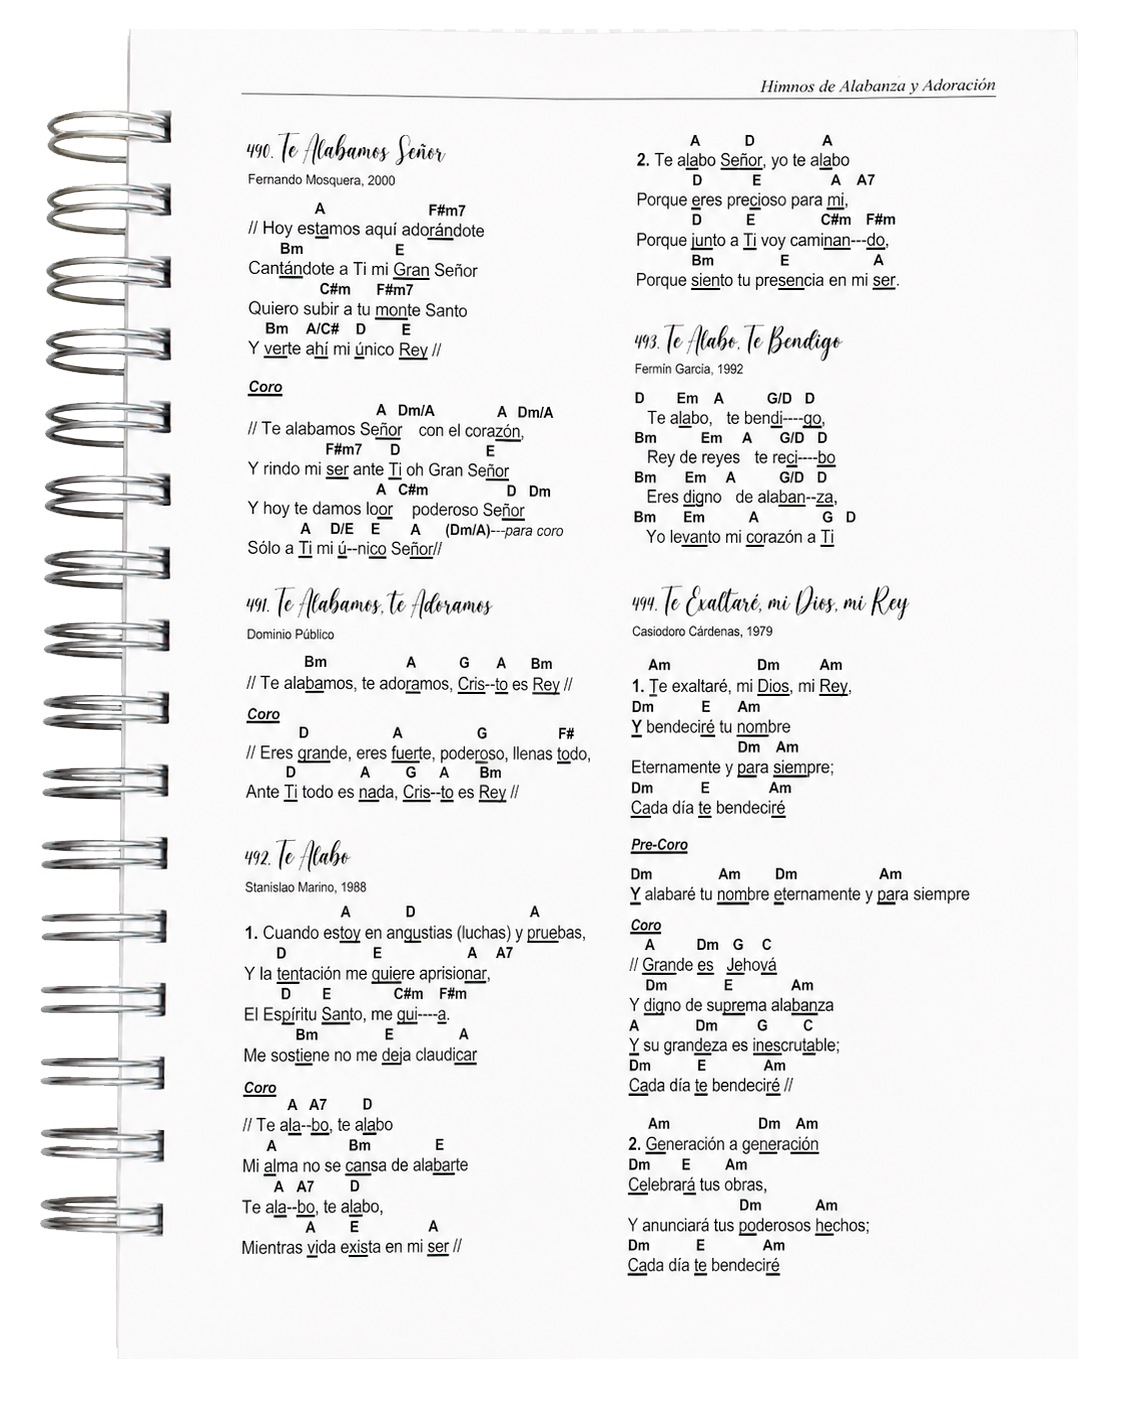 Himnos de Alabanza y Adoración
490. Te Alabamos Señor
Fernando Mosquera, 2000
A F#m7
// Hoy estamos aquí adorándote
Bm E
Cantándote a Ti mi Gran Señor
C#m F#m7
Quiero subir a tu monte Santo
Bm A/C# D E
Y verte ahí mi único Rey //
Coro
A Dm/A A Dm/A
// Te alabamos Señor con el corazón,
F#m7 D E
Y rindo mi ser ante Ti oh Gran Señor
A C#m D Dm
Y hoy te damos loor poderoso Señor
A D/E E A (Dm/A)---para coro
Sólo a Ti mi ú--nico Señor//
491. Te Alabamos, te Adoramos
Dominio Público
Bm A G A Bm
// Te alabamos, te adoramos, Cris--to es Rey //
Coro
D A G F#
// Eres grande, eres fuerte, poderoso, llenas todo,
D A G A Bm
Ante Ti todo es nada, Cris--to es Rey //
492. Te Alabo
Stanislao Marino, 1988
A D A
1. Cuando estoy en angustias (luchas) y pruebas,
D E A A7
Y la tentación me quiere aprisionar,
D E C#m F#m
El Espíritu Santo, me gui----a.
Bm E A
Me sostiene no me deja claudicar
Coro
A A7 D
// Te ala--bo, te alabo
A Bm E
Mi alma no se cansa de alabarte
A A7 D
Te ala--bo, te alabo,
A E A
Mientras vida exista en mi ser //
A D A
2. Te alabo Señor, yo te alabo
D E A A7
Porque eres precioso para mi,
D E C#m F#m
Porque junto a Ti voy caminan---do,
Bm E A
Porque siento tu presencia en mi ser.
493. Te Alabo, Te Bendigo
Fermin Garcia, 1992
D Em A G/D D
Te alabo, te bendi----go,
Bm Em A G/D D
Rey de reyes te reci----bo
Bm Em A G/D D
Eres digno de alaban--za,
Bm Em A G D
Yo levanto mi corazón a Ti
494. Te Exaltaré, mi Dios, mi Rey
Casiodoro Cárdenas, 1979
Am Dm Am
1. Te exaltaré, mi Dios, mi Rey,
Dm E Am
Y bendeciré tu nombre
Dm Am
Eternamente y para siempre;
Dm E Am
Cada día te bendeciré
Pre-Coro
Dm Am Dm Am
Y alabaré tu nombre eternamente y para siempre
Coro
A Dm G C
// Grande es Jehová
Dm E Am
Y digno de suprema alabanza
A Dm G C
Y su grandeza es inescrutable;
Dm E Am
Cada día te bendeciré //
Am Dm Am
2. Generación a generación
Dm E Am
Celebrará tus obras,
Dm Am
Y anunciará tus poderosos hechos;
Dm E Am
Cada día te bendeciré